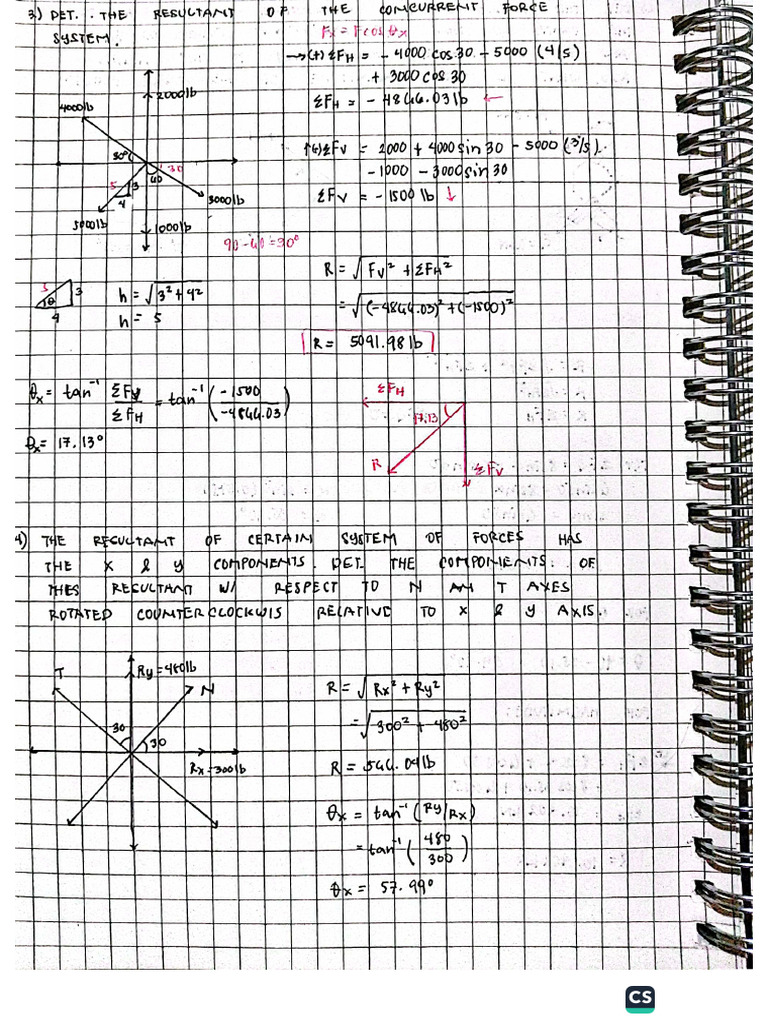 3) DET. THE RESULTANT OF THE CONCURRENT FORCE
SYSTEM.
Fx = Fcosθx
→(+) ΣFH = - 4000 cos 30 - 5000 (4/5)
+ 3000 cos 30
ΣFH = - 4866.03 lb ←
↑(+) ΣFV = 2000 + 4000 sin 30 - 5000 (3/5)
- 1000 - 3000 sin 30
ΣFV = - 1500 lb ↓
2000 lb
4000 lb
30°
30
60
5
3
4
3000 lb
5000 lb
1000 lb
90 - 60 = 30°
5
3
θ
4
h = √3² + 4²
h = 5
R = √FV² + ΣFH²
= √(-4866.03)² + (-1500)²
R = 5091.98 lb
θx = tan⁻¹ ΣFy/ΣFH = tan⁻¹ (-1500/-4866.03)
θx = 17.13°
ΣFH
17.13
R
ΣFV
4) THE RESULTANT OF CERTAIN SYSTEM OF FORCES HAS
THE X & Y COMPONENTS. DET. THE COMPONENTS. OF
THES RESULTANT W/ RESPECT TO N AN T AXES
ROTATED COUNTERCLOCKWIS RELATIVE TO X & Y AXIS.
T
Ry = 480 lb
N
30
30
Rx = 300 lb
R = √Rx² + Ry²
= √300² + -480²
R = 566.04 lb
θx = tan⁻¹ (Ry/Rx)
= tan⁻¹ (480/300)
θx = 57.99°
CS